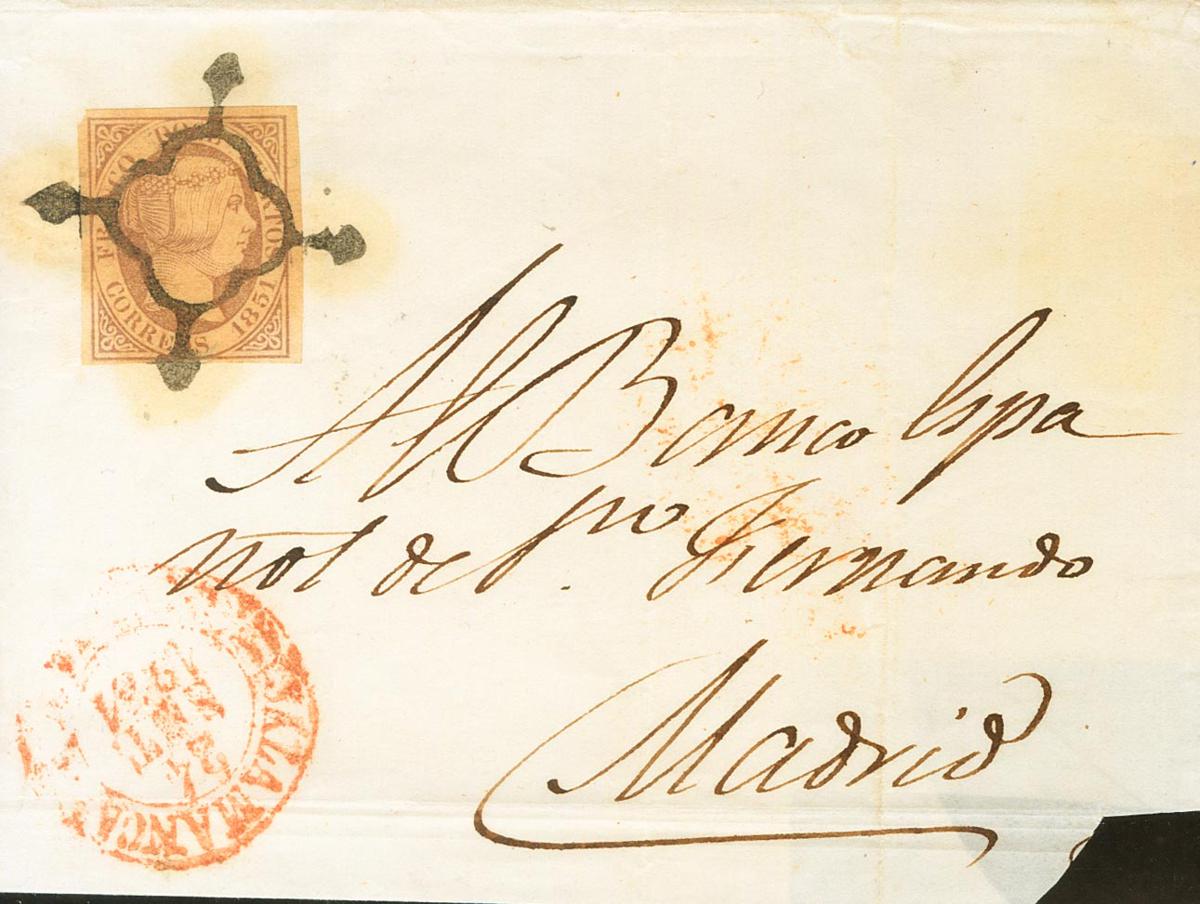 FRANCO DOCE CUARTOS
CORREOS 1851
Al Banco Espa
ñol de Sn. Fernando
Madrid
SALAMANCA
24
1851